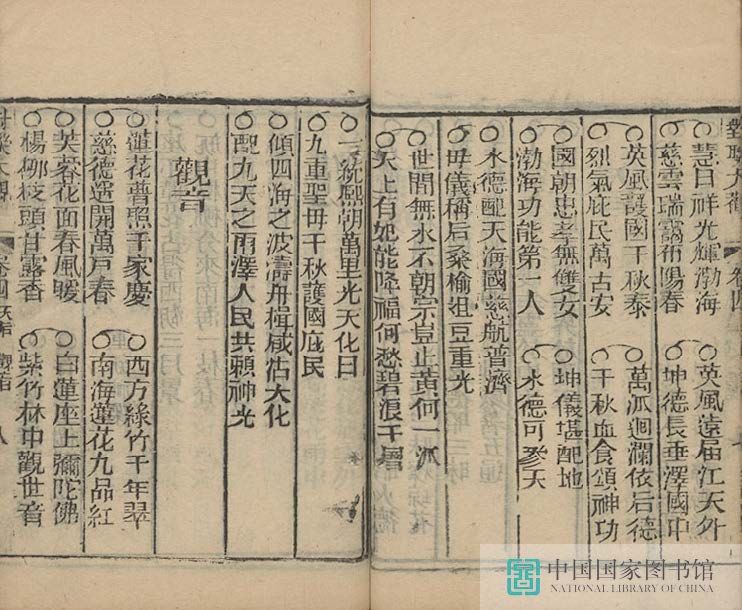 對聯大觀 卷四
慧日祥光輝渤海 英風遠届江天外
慈雲瑞靄布陽春 坤德長垂澤國中
英風護國千秋泰 萬派迴瀾依后德
烈氣庇民萬古安 千秋血食頌神功
國朝忠孝無雙女 坤儀堪配地
渤海功能第一人 水德可參天
水德配天海國慈航普濟
毋儀稱后桑榆祖豆重光
世間無水不朝宗豈止黃何一派
天上有妃能降福何愁碧浪千層
一統熙朝萬里光天化日
九重聖毋千秋護國庇民
傾四海之波濤舟楫咸沾大化
配九天之雨澤人民共賴神光
觀音
蓮花普照千家慶 西方綠竹千年翠
慈德遥開萬戸春 南海蓮花九品紅
芙蓉花面春風暖 白蓮座上彌陀佛
楊柳枝頭甘露香 紫竹林中觀世音
對聯大觀 卷四 天后 觀音 八
中国国家图书馆
NATIONAL LIBRARY OF CHINA